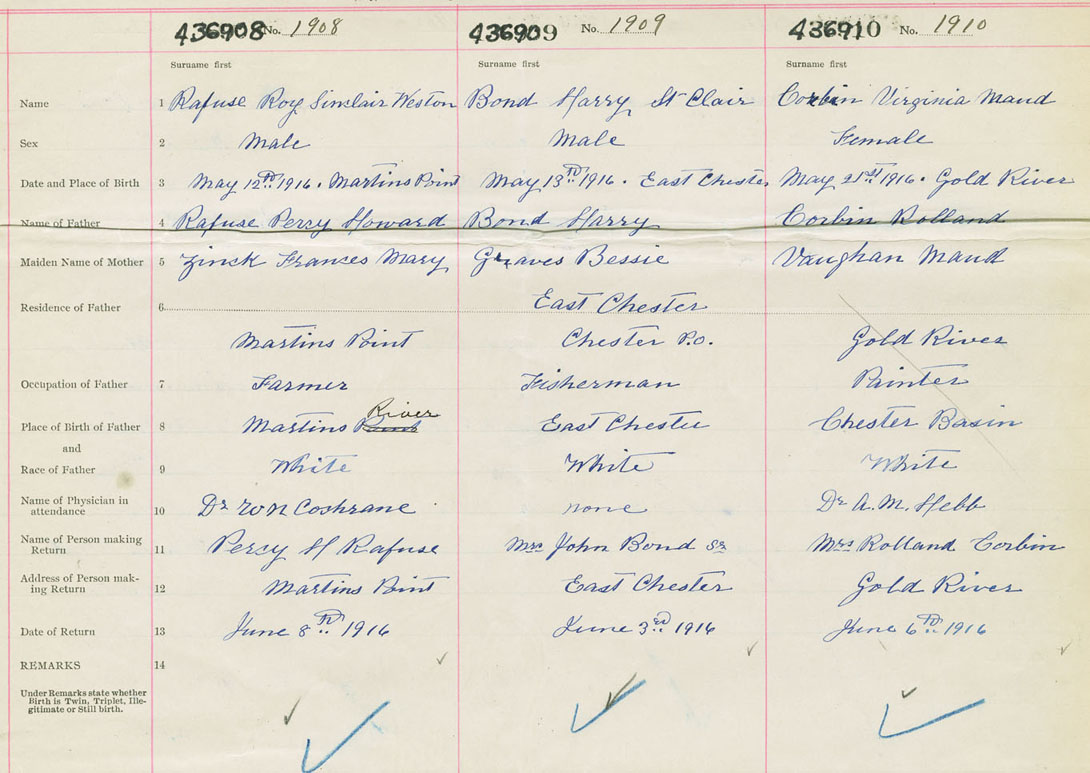 436908 No. 1908 436909 No. 1909 436910 No. 1910
Surname first Surname first Surname first
Name 1 Rafuse Roy Sinclair Weston Bond Harry St Clair Corbin Virginia Maud
Sex 2 Male Male Female
Date and Place of Birth 3 May 12th 1916. Martins Point May 13th 1916. East Chester May 21st 1916. Gold River
Name of Father 4 Rafuse Percy Howard Bond Harry Corbin Rolland
Maiden Name of Mother 5 Zinck Frances Mary Graves Bessie Vaughan Maud
Residence of Father 6 East Chester
Martins Point Chester P.O. Gold River
Occupation of Father 7 Farmer Fisherman Painter
River
Place of Birth of Father 8 Martins Point East Chester Chester Basin
and
Race of Father 9 White White White
Name of Physician in
attendance 10 Dr W N Cochrane none Dr A. M. Hebb
Name of Person making
Return 11 Percy H Rafuse Mrs John Bond Sr Mrs Rolland Corbin
Address of Person mak-
ing Return 12 Martins Point East Chester Gold River
Date of Return 13 June 8th 1916 June 3rd 1916 June 6th 1916
REMARKS 14
Under Remarks state whether
Birth is Twin, Triplet, Ille-
gitimate or Still birth.